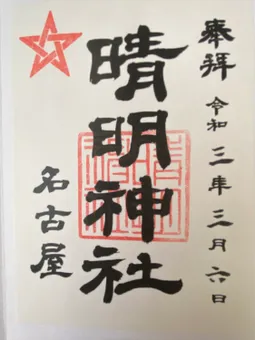 奉拝
令和三年三月六日
晴明神社
名古屋